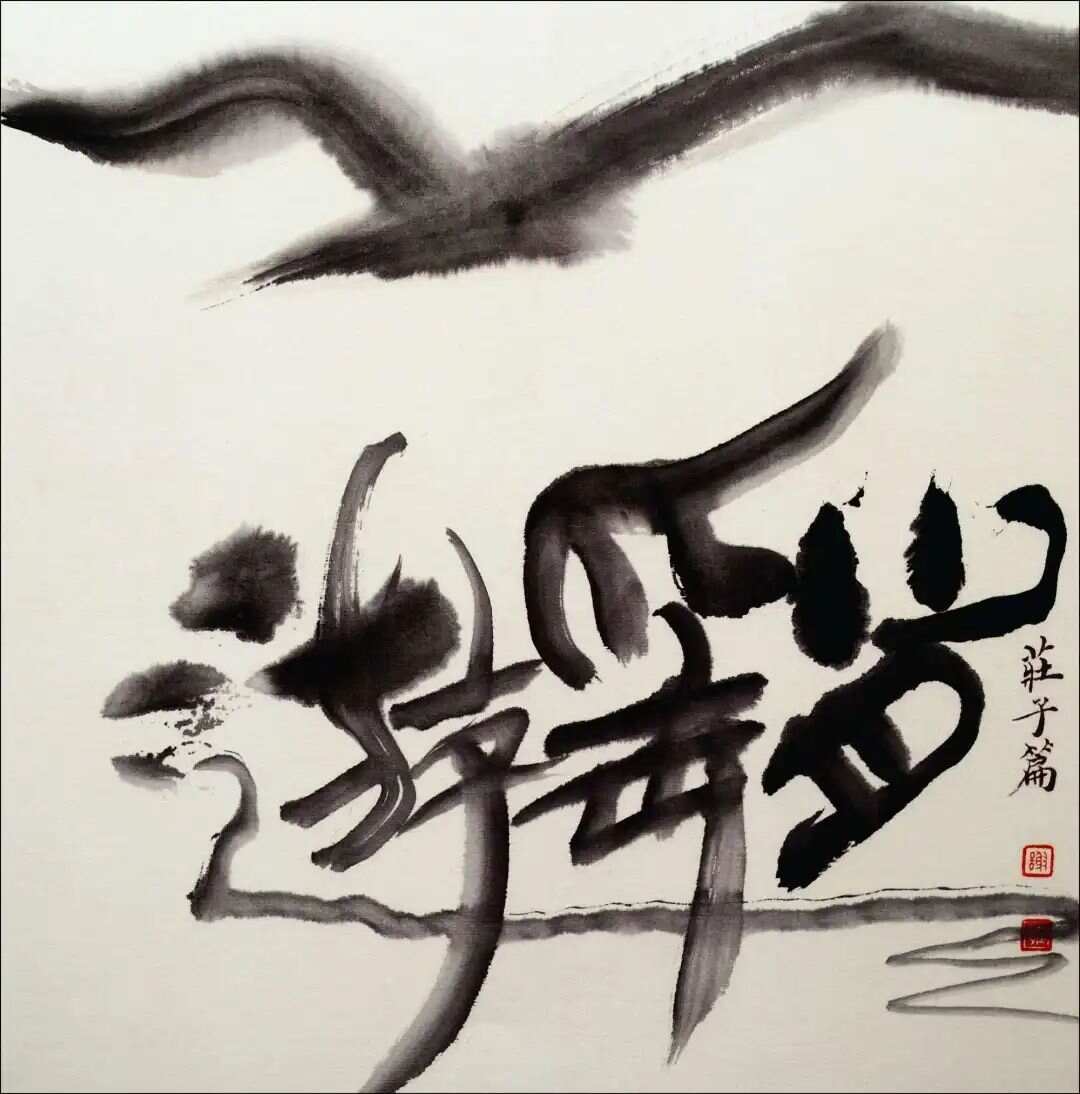 逍遙遊
莊子篇
謝